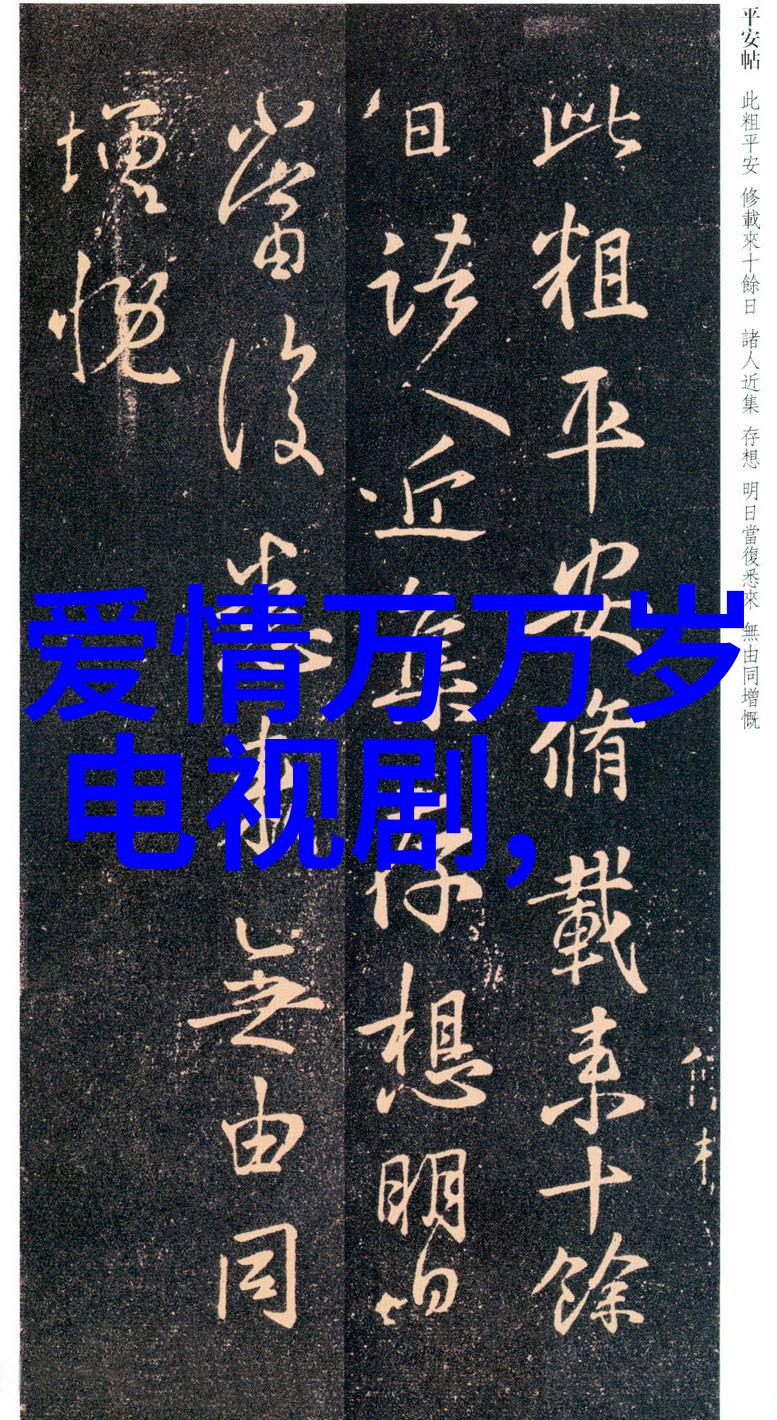 平安帖 此粗平安 修載來十餘日 諸人近集 存想 明日當復悉來 無由同增慨
此粗平安脩載来十餘
日諸人近集存想明日
當復悉来無由同
增慨
爱情万万岁
电视剧,